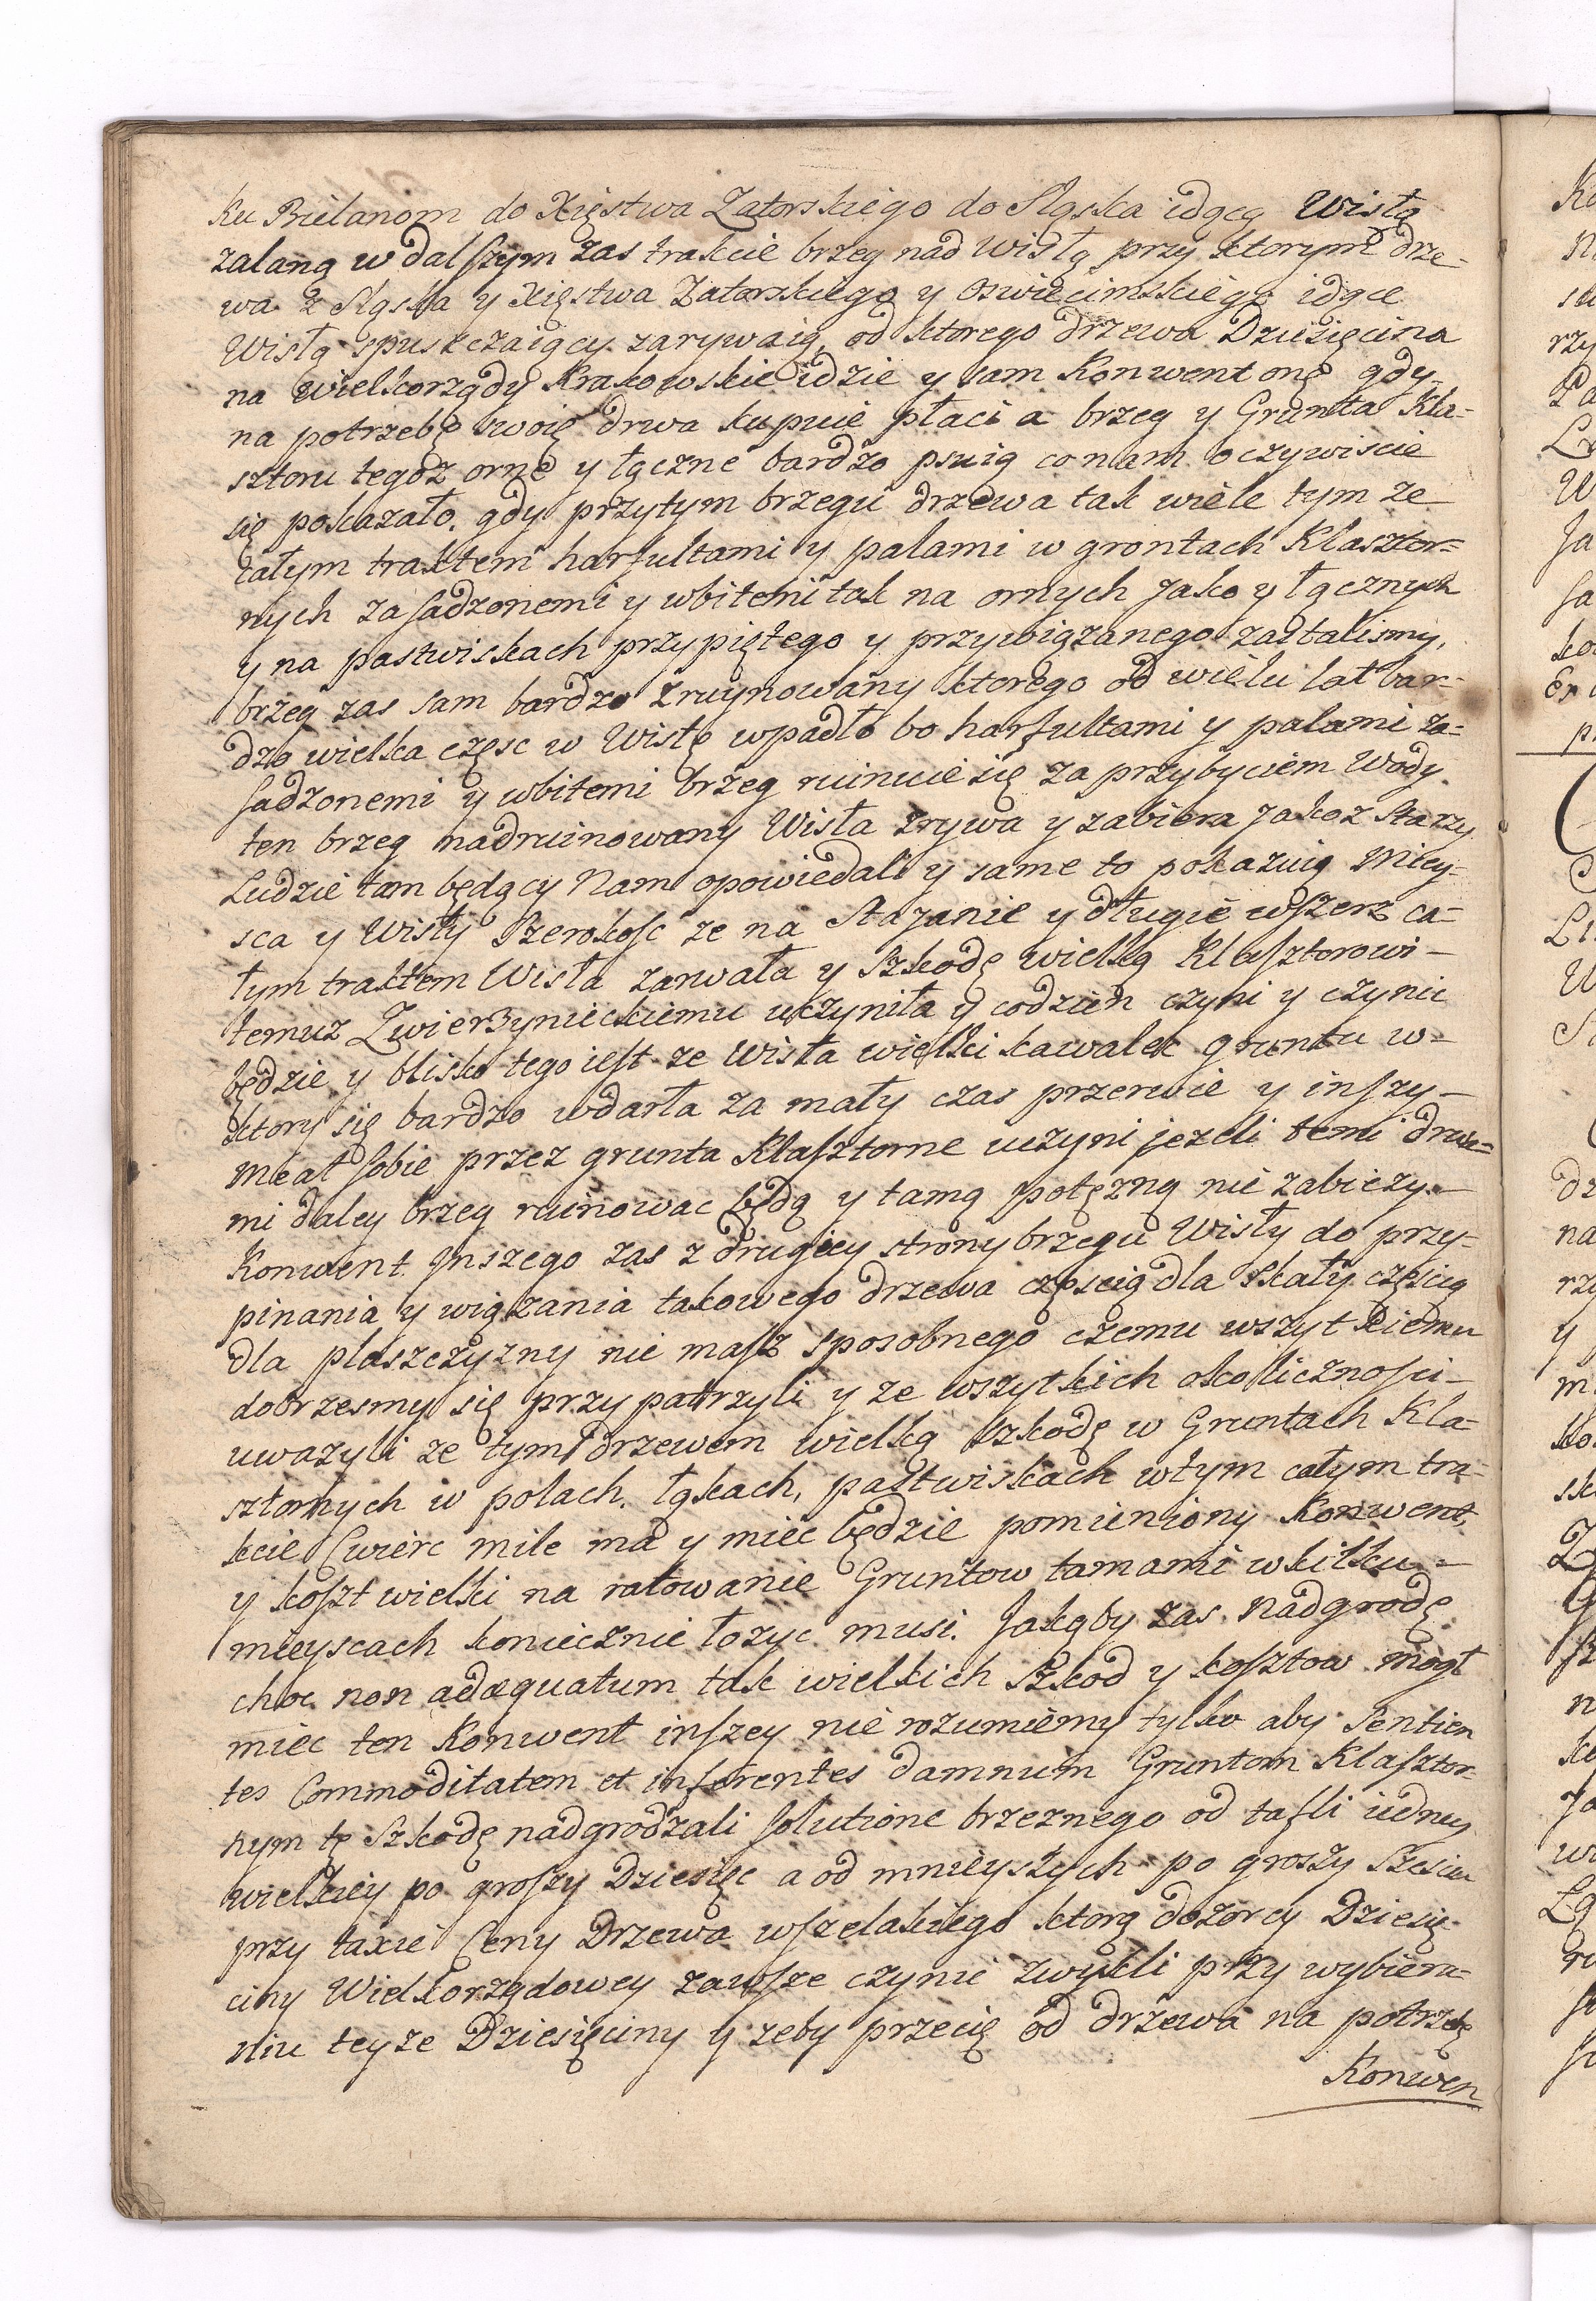 ku Bielanom do Xięstwa Zatorskiego do Sląska idącą Wisłą
zalaną w dalszym zas trakcie brzeg nad Wisłą przy ktorym drze-
wa z Sląska y Xięstwa Zatorskiego y Oswiecimskiego idące
Wisłą spuszczaiący zarywaią, od ktorego drzewa Dziesięcina
na Wielkorządy Krakowskie idzie y sam Konwent onę gdy
na potrzebę swoię drwa kupuie płaci a brzeg y Grunta Kla-
sztoru tegoz orne y łączne bardzo psuią co nam oczywiscie
się pokazało. gdy przytym brzegu drzewa tak wiele tym ze
całym traktem harfultami y palami w grontach Klasztor=
nych zasadzonemi y wbitemi tak na ornych jako y łącznych
y na pastwiskach przypiętego y przywiązanego zastalismy,
brzeg zas sam bardzo zruynowany ktorego od wielu lat bar-
dzo wielka częsc w Wisłę wpadło bo harfultami y palami za=
sadzonemi y wbitemi brzeg ruinuie się za przybyciem Wody
ten brzeg nadruinowany Wisła zrywa y zabiera jakoz Starzy
Ludzie tam będący Nam opowiedali y same to pokazuią Miey-
sca y Wisły Szerokosc ze na Stajanie y długie wszerz ca-
łym traktem Wisła zarwała y Szkodę wielką Klasztorowi-
temuz Zwierzynieckiemu uczyniła y codzień czyni y czynic
będzie y blisko tego iest ze Wisła wielki kawalek gruntu w-
ktory się bardzo wdarła za mały czas przerwie y inszy-
meat sobie przez grunta Klasztorne uczyni jezeli temi drwa=
mi daley brzeg ruinowac będą y tamą potęzną nie zabiezy-
Konwent. Inszego zas z drugiey strony brzegu Wisły do przy-
pinania y wiązania takowego drzewa częscią dla Skały częscią
dla plaszczyzny nie masz sposobnego czemu wszytkiemu
dobrzesmy się przypatrzyli y ze wszytkich okolicznosci-
uwazyli ze tym drzewem wielką szkodę w Gruntach Kla-
sztornych w polach. łąkach, pastwiskach wtym całym tra-
kcie Cwierc mile ma y miec będzie pomieniony Konwent
y koszt wielki na ratowanie Gruntow tamami wkilku-
mieyscach koniecznie łozyc musi. Jakąby zas nadgrodę
choc non adæquatum tak wielkich Szkod y kosztow mogł
miec ten Konwent inszey nie rozumiemy tylko aby Sentien
tes Commoditatem et inferentes damnum Gruntom Klasztor-
nym tę Szkodę nadgrodzali solutione brzeznego od tafli iedney
wielkiey po groszy Dziesięc a od mnieyszych po groszy Szesciu
przy taxie Ceny Drzewa wszelakiego ktorą dozorcy Dziesię-
ciny Wielkorządowey zawsze czynic zwykli przy wybiera-
niu teyze Dziesięciny y zeby przecię od drzewa na potrzebę
Konwen